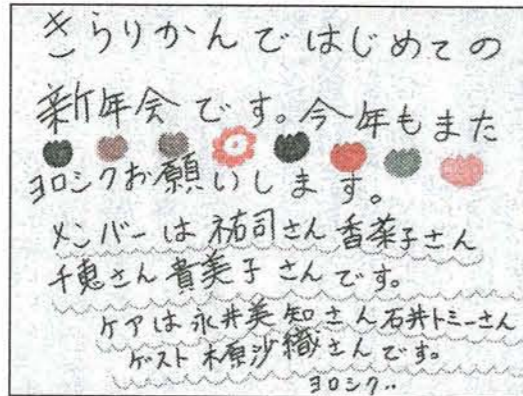 きらりかんではじめての
新年会です。今年もまた
ヨロシクお願いします。
メンバーは祐司さん香菜子さん
千恵さん貴美子さんです。
ケアは永井美知さん石井トミーさん
ゲスト木原沙織さんです。
ヨロシク..